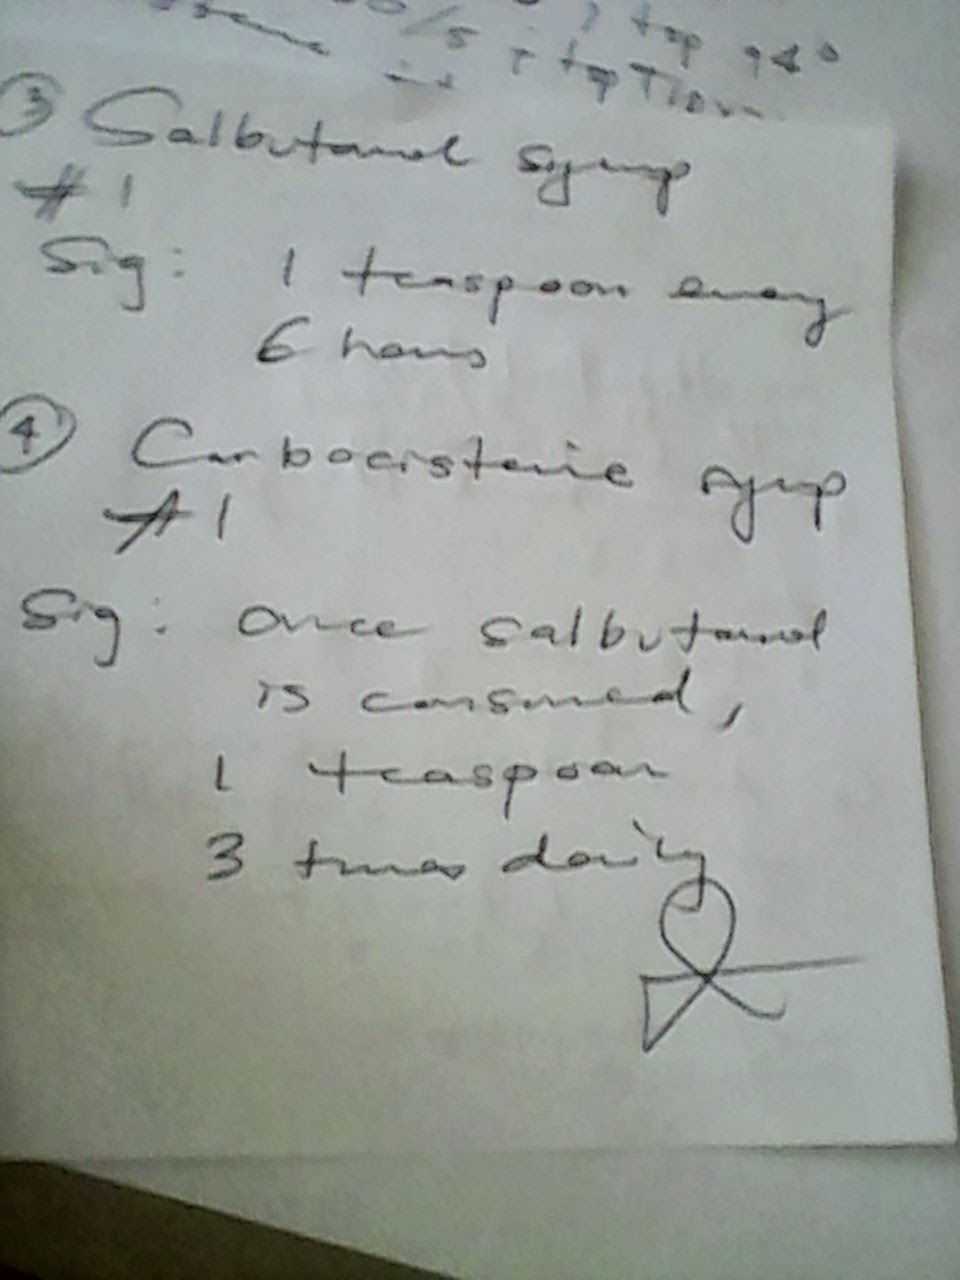 /5 i tsp q4°
i tsp TID
③ Salbutamol syrup
#1
Sig: 1 teaspoon every
6 hours
④ Carbocisteine syrup
#1
Sig: once salbutamol
is consumed,
1 teaspoon
3 times daily